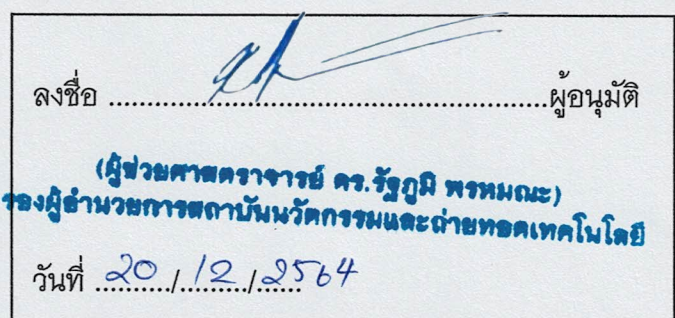 ลงชื่อ ........................................................ผู้อนุมัติ
(ผู้ช่วยศาสตราจารย์ ดร.รัฐภูมิ พรหมณะ)
รองผู้อำนวยการสถาบันนวัตกรรมและถ่ายทอดเทคโนโลยี
วันที่ 20/12/2564